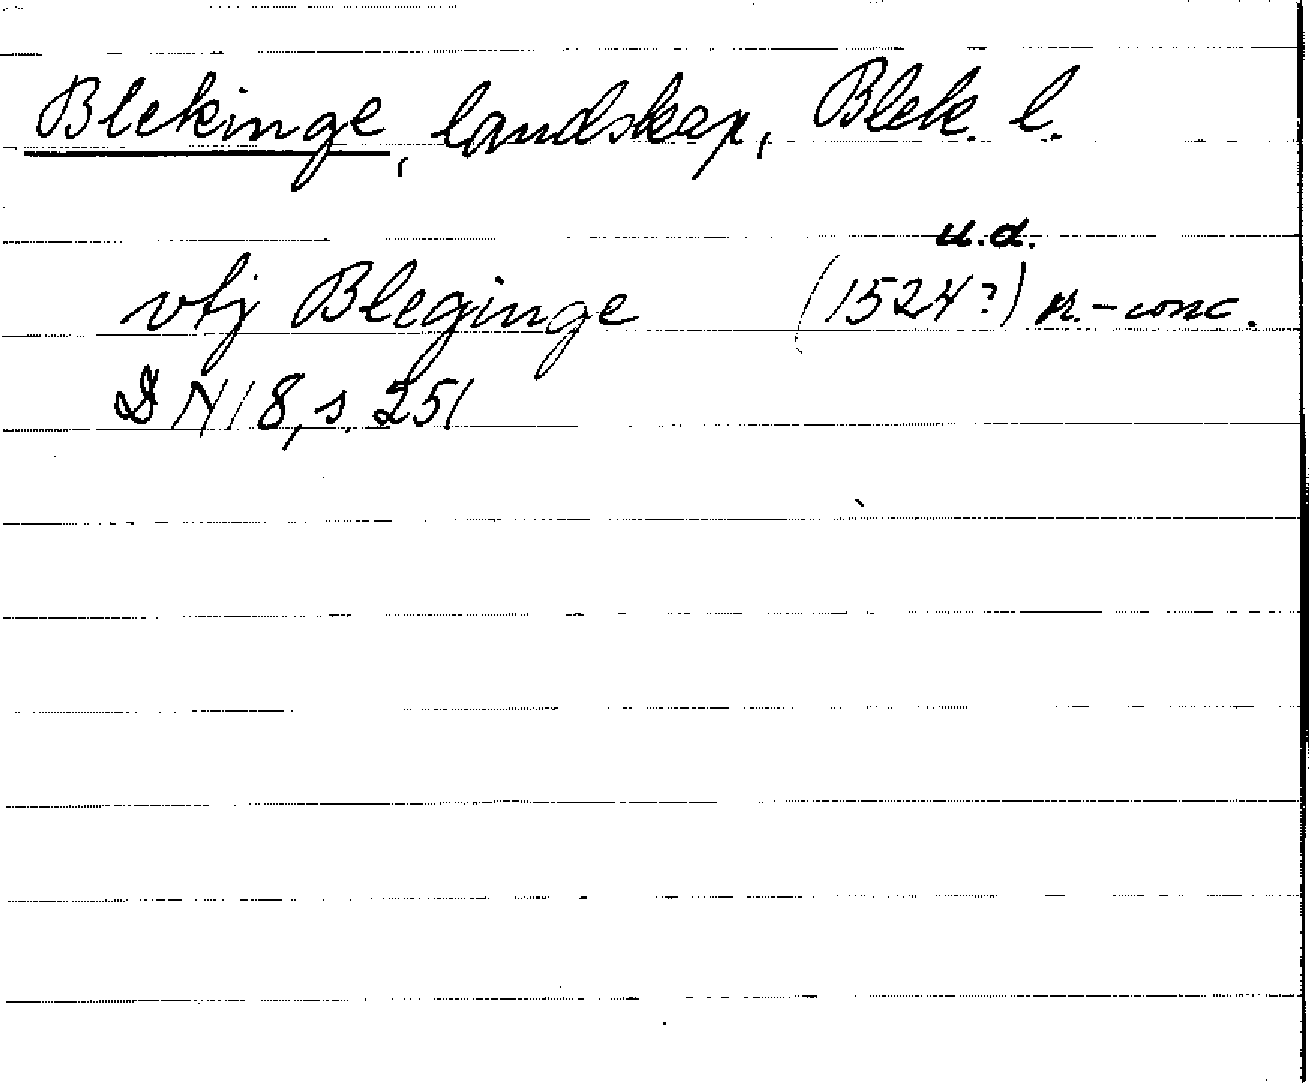 Blekinge, landskap, Blek. l.
u.d.
vtj Bleginge (1524?) n.-conc.
DN 18, s. 251